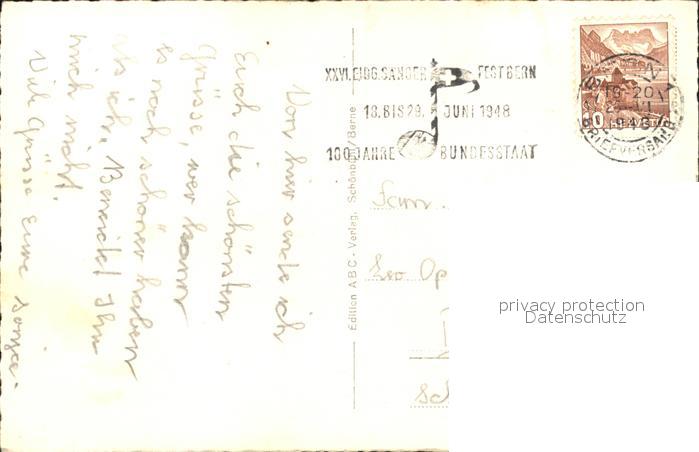 Von hier sende ich
Euch die schönsten
Grüsse, wer kann
es noch schöner haben
als ich. Bemerkt Ihr
mich nicht.
Viele Grüsse Eure
Edition ABC - Verlag, Schönbühl/Berne
XXVI.EIDG.SÄNGER FEST BERN
18.BIS 29. JUNI 1948
100 JAHRE BUNDESSTAAT
19-20
1948
BRIEFVERSAND
10 HELVETIA
Fam.
Leo Op
Sch
privacy protection
Datenschutz